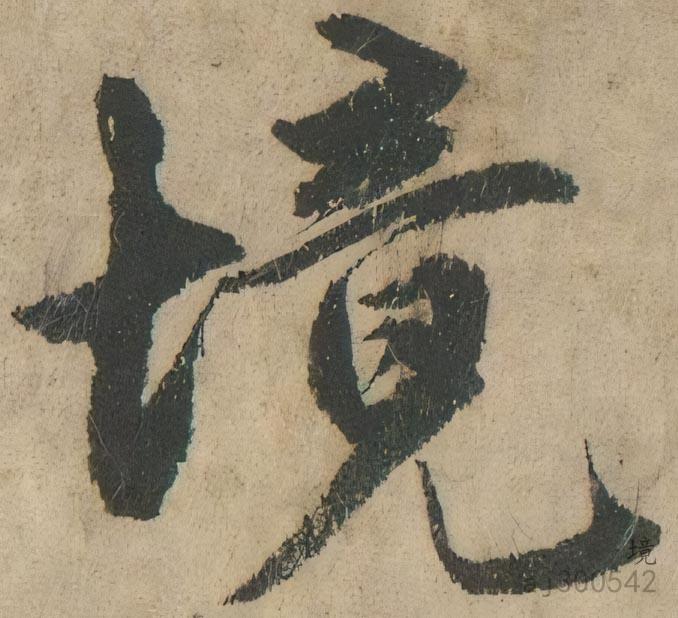 境
境
aj300542